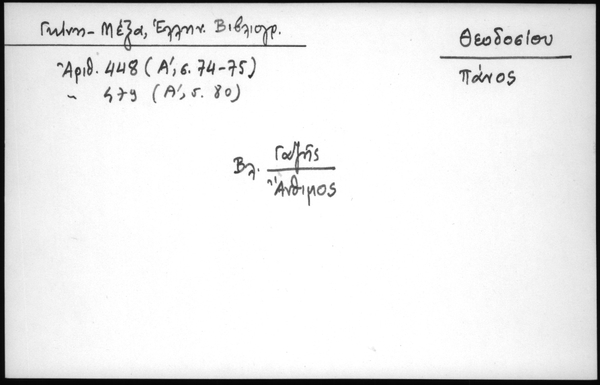 Γκίνη - Μέξα, Ἑλλην. Βιβλιογρ.
Θεοδοσίου
Πάνος
Ἀριθ. 448 (Α', σ. 74-75)
" 479 (Α', σ. 80)
Βλ. Γαζῆς
Ἄνθιμος